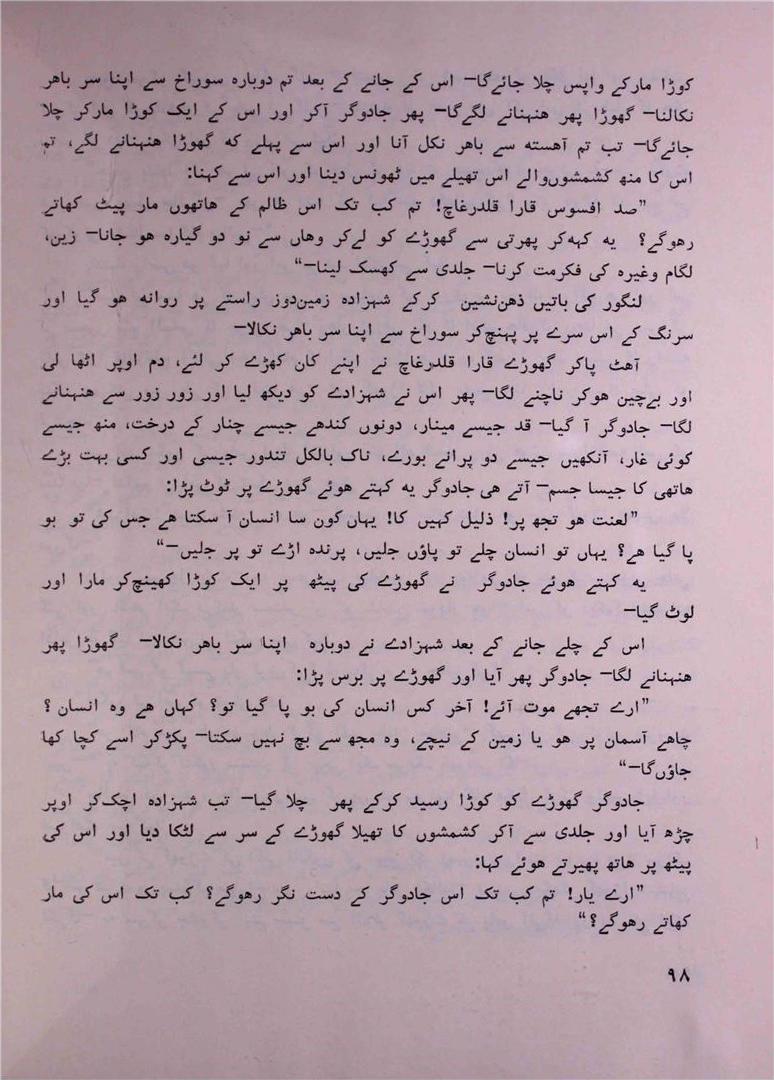 کوڑا مارکے واپس چلا جائے‌گا— اس کے جانے کے بعد تم دوبارہ سوراخ سے اپنا سر باھر
نکالنا— گھوڑا پھر ھنھنانے لگے‌گا— پھر جادوگر آکر اور اس کے ایک کوڑا مارکر چلا
جائے‌گا— تب تم آھستہ سے باھر نکل آنا اور اس سے پہلے کہ گھوڑا ھنھنانے لگے، تم
اس کا منھ کشمشوں‌والے اس تھیلے میں ٹھونس دینا اور اس سے کہنا:
”صد افسوس قارا قلدرغاچ! تم کب تک اس ظالم کے ھاتھوں مار پیٹ کھاتے
رھوگے؟ یہ کہہ‌کر پھرتی سے گھوڑے کو لے‌کر وھاں سے نو دو گیارہ ھو جانا— زین،
لگام وغیرہ کی فکرمت کرنا— جلدی سے کھسک لینا—“
لنگور کی باتیں ذھن‌نشین کرکے شہزادہ زمین‌دوز راستے پر روانہ ھو گیا اور
سرنگ کے اس سرے پر پہنچ‌کر سوراخ سے اپنا سر باھر نکالا—
آھٹ پاکر گھوڑے قارا قلدرغاچ نے اپنے کان کھڑے کر لئے، دم اوپر اٹھا لی
اور بے‌چین ھوکر ناچنے لگا— پھر اس نے شہزادے کو دیکھ لیا اور زور زور سے ھنھنانے
لگا— جادوگر آ گیا— قد جیسے مینار، دونوں کندھے جیسے چنار کے درخت، منھ جیسے
کوئی غار، آنکھیں جیسے دو پرانے بورے، ناک بالکل تندور جیسی اور کسی بہت بڑے
ھاتھی کا جیسا جسم— آتے ھی جادوگر یہ کہتے ھوئے گھوڑے پر ٹوٹ پڑا:
”لعنت ھو تجھ پر! ذلیل کہیں کا! یہاں کون سا انسان آ سکتا ھے جس کی تو بو
پا گیا ھے؟ یہاں تو انسان چلے تو پاؤں جلیں، پرندہ اڑے تو پر جلیں—“
یہ کہتے ھوئے جادوگر نے گھوڑے کی پیٹھ پر ایک کوڑا کھینچ‌کر مارا اور
لوٹ گیا—
اس کے چلے جانے کے بعد شہزادے نے دوبارہ اپنا سر باھر نکالا— گھوڑا پھر
ھنھنانے لگا— جادوگر پھر آیا اور گھوڑے پر برس پڑا:
”ارے تجھے موت آئے! آخر کس انسان کی بو پا گیا تو؟ کہاں ھے وہ انسان؟
چاھے آسمان پر ھو یا زمین کے نیچے، وہ مجھ سے بچ نہیں سکتا— پکڑکر اسے کچا کھا
جاؤں‌گا—“
جادوگر گھوڑے کو کوڑا رسید کرکے پھر چلا گیا— تب شہزادہ اچک‌کر اوپر
چڑھ آیا اور جلدی سے آکر کشمشوں کا تھیلا گھوڑے کے سر سے لٹکا دیا اور اس کی
پیٹھ پر ھاتھ پھیرتے ھوئے کہا:
”ارے یار! تم کب تک اس جادوگر کے دست نگر رھوگے؟ کب تک اس کی مار
کھاتے رھوگے؟“
۹۸